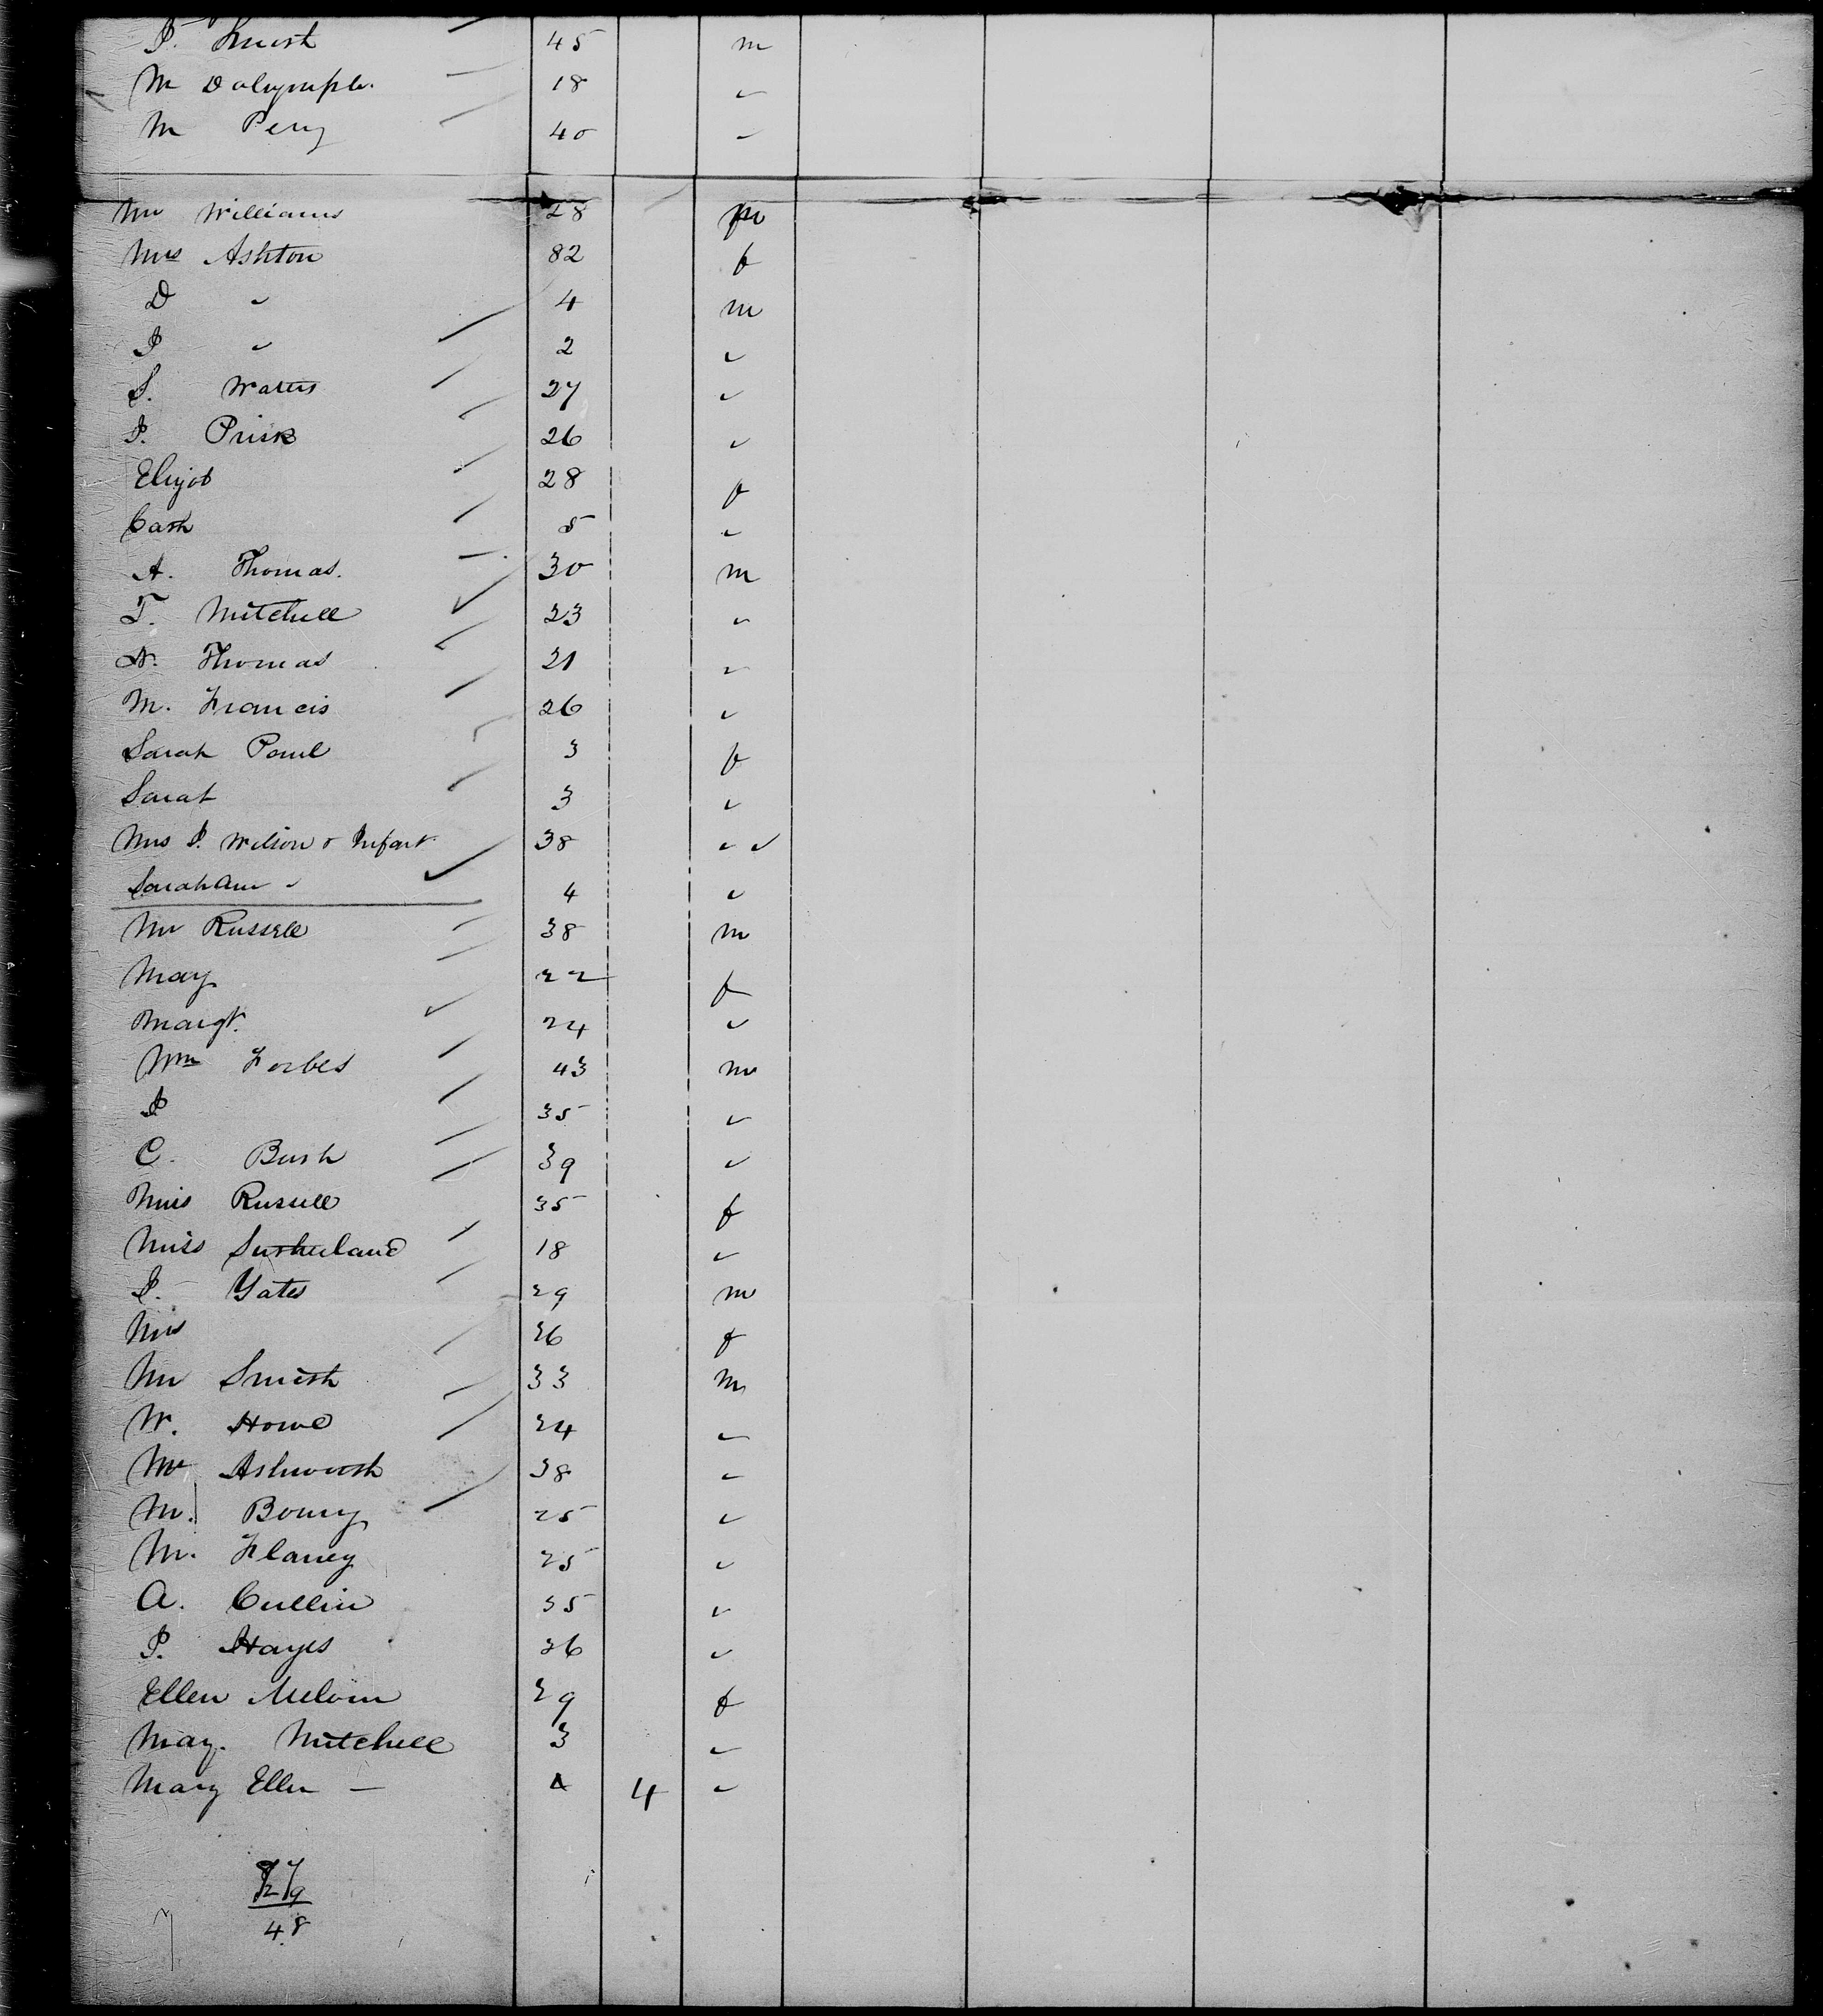 P. Smith 45 m
M Dalrymple. 18 "
M Perry 40 "
Mr Williams 28 m
Mrs Ashton 82 f
D " 4 m
P " 2 "
S. Waters 27 "
P. Prisk 26 "
Elizab 28 f
Cath 5 "
A. Thomas. 30 m
T. Mitchell 23 "
N. Thomas 21 "
M. Francis 26 "
Sarah Paul 3 f
Sarah 3 "
Mrs P. Wilson & Infant 38 " "
Sarah Ann " 4 "
Mr Russell 38 m
Mary 22 f
Margt. 24 "
Wm Forbes 43 m
P 35 "
C. Bush 39 "
Miss Russell 35 f
Miss Sutherland 18 "
P. Yates 29 m
Mrs 26 f
Mr Smith 33 m
W. Howe 24 "
Mr Ashworth 38 "
M. 25 "
M. Flaney 25 "
A. Cullin 35 "
P. Hayes 26 "
Ellen Melvin 29 f
Mary. Mitchell 3 "
Mary Ellen — 4 4 "
48